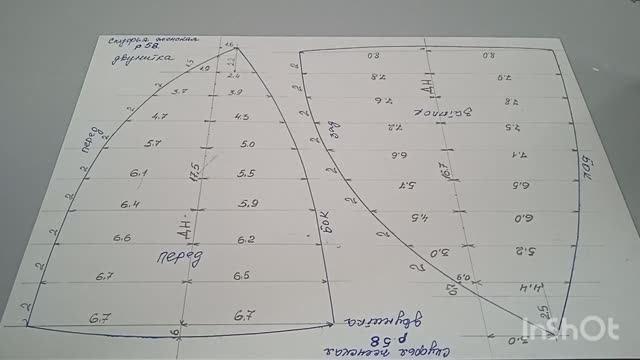 Скуфья женская
р 58.
двунитка
1.6
2.2
1.5
1.9
2.4
2
3.7
3.9
2
4.7
4.5
2
перед
5.7
5.0
2
17,5
6.1
5.5
2
6.4
5.9
2
ДН
Бок
6.6
6.2
2
перед
6.7
6.5
2
6.7
6.7
6
8.0
8.0
2
7.8
ДН
7.9
2
7.6
7.8
затылок
2
зад
7.2
7.5
2
6.6
7.1
16.7
Бок
2
5.7
6.5
2
4.5
6.0
2
3.0
5.2
2
0.9
4.4
0.7
2.5
3.0
Скуфья женская
р.58
двунитка
InShOt